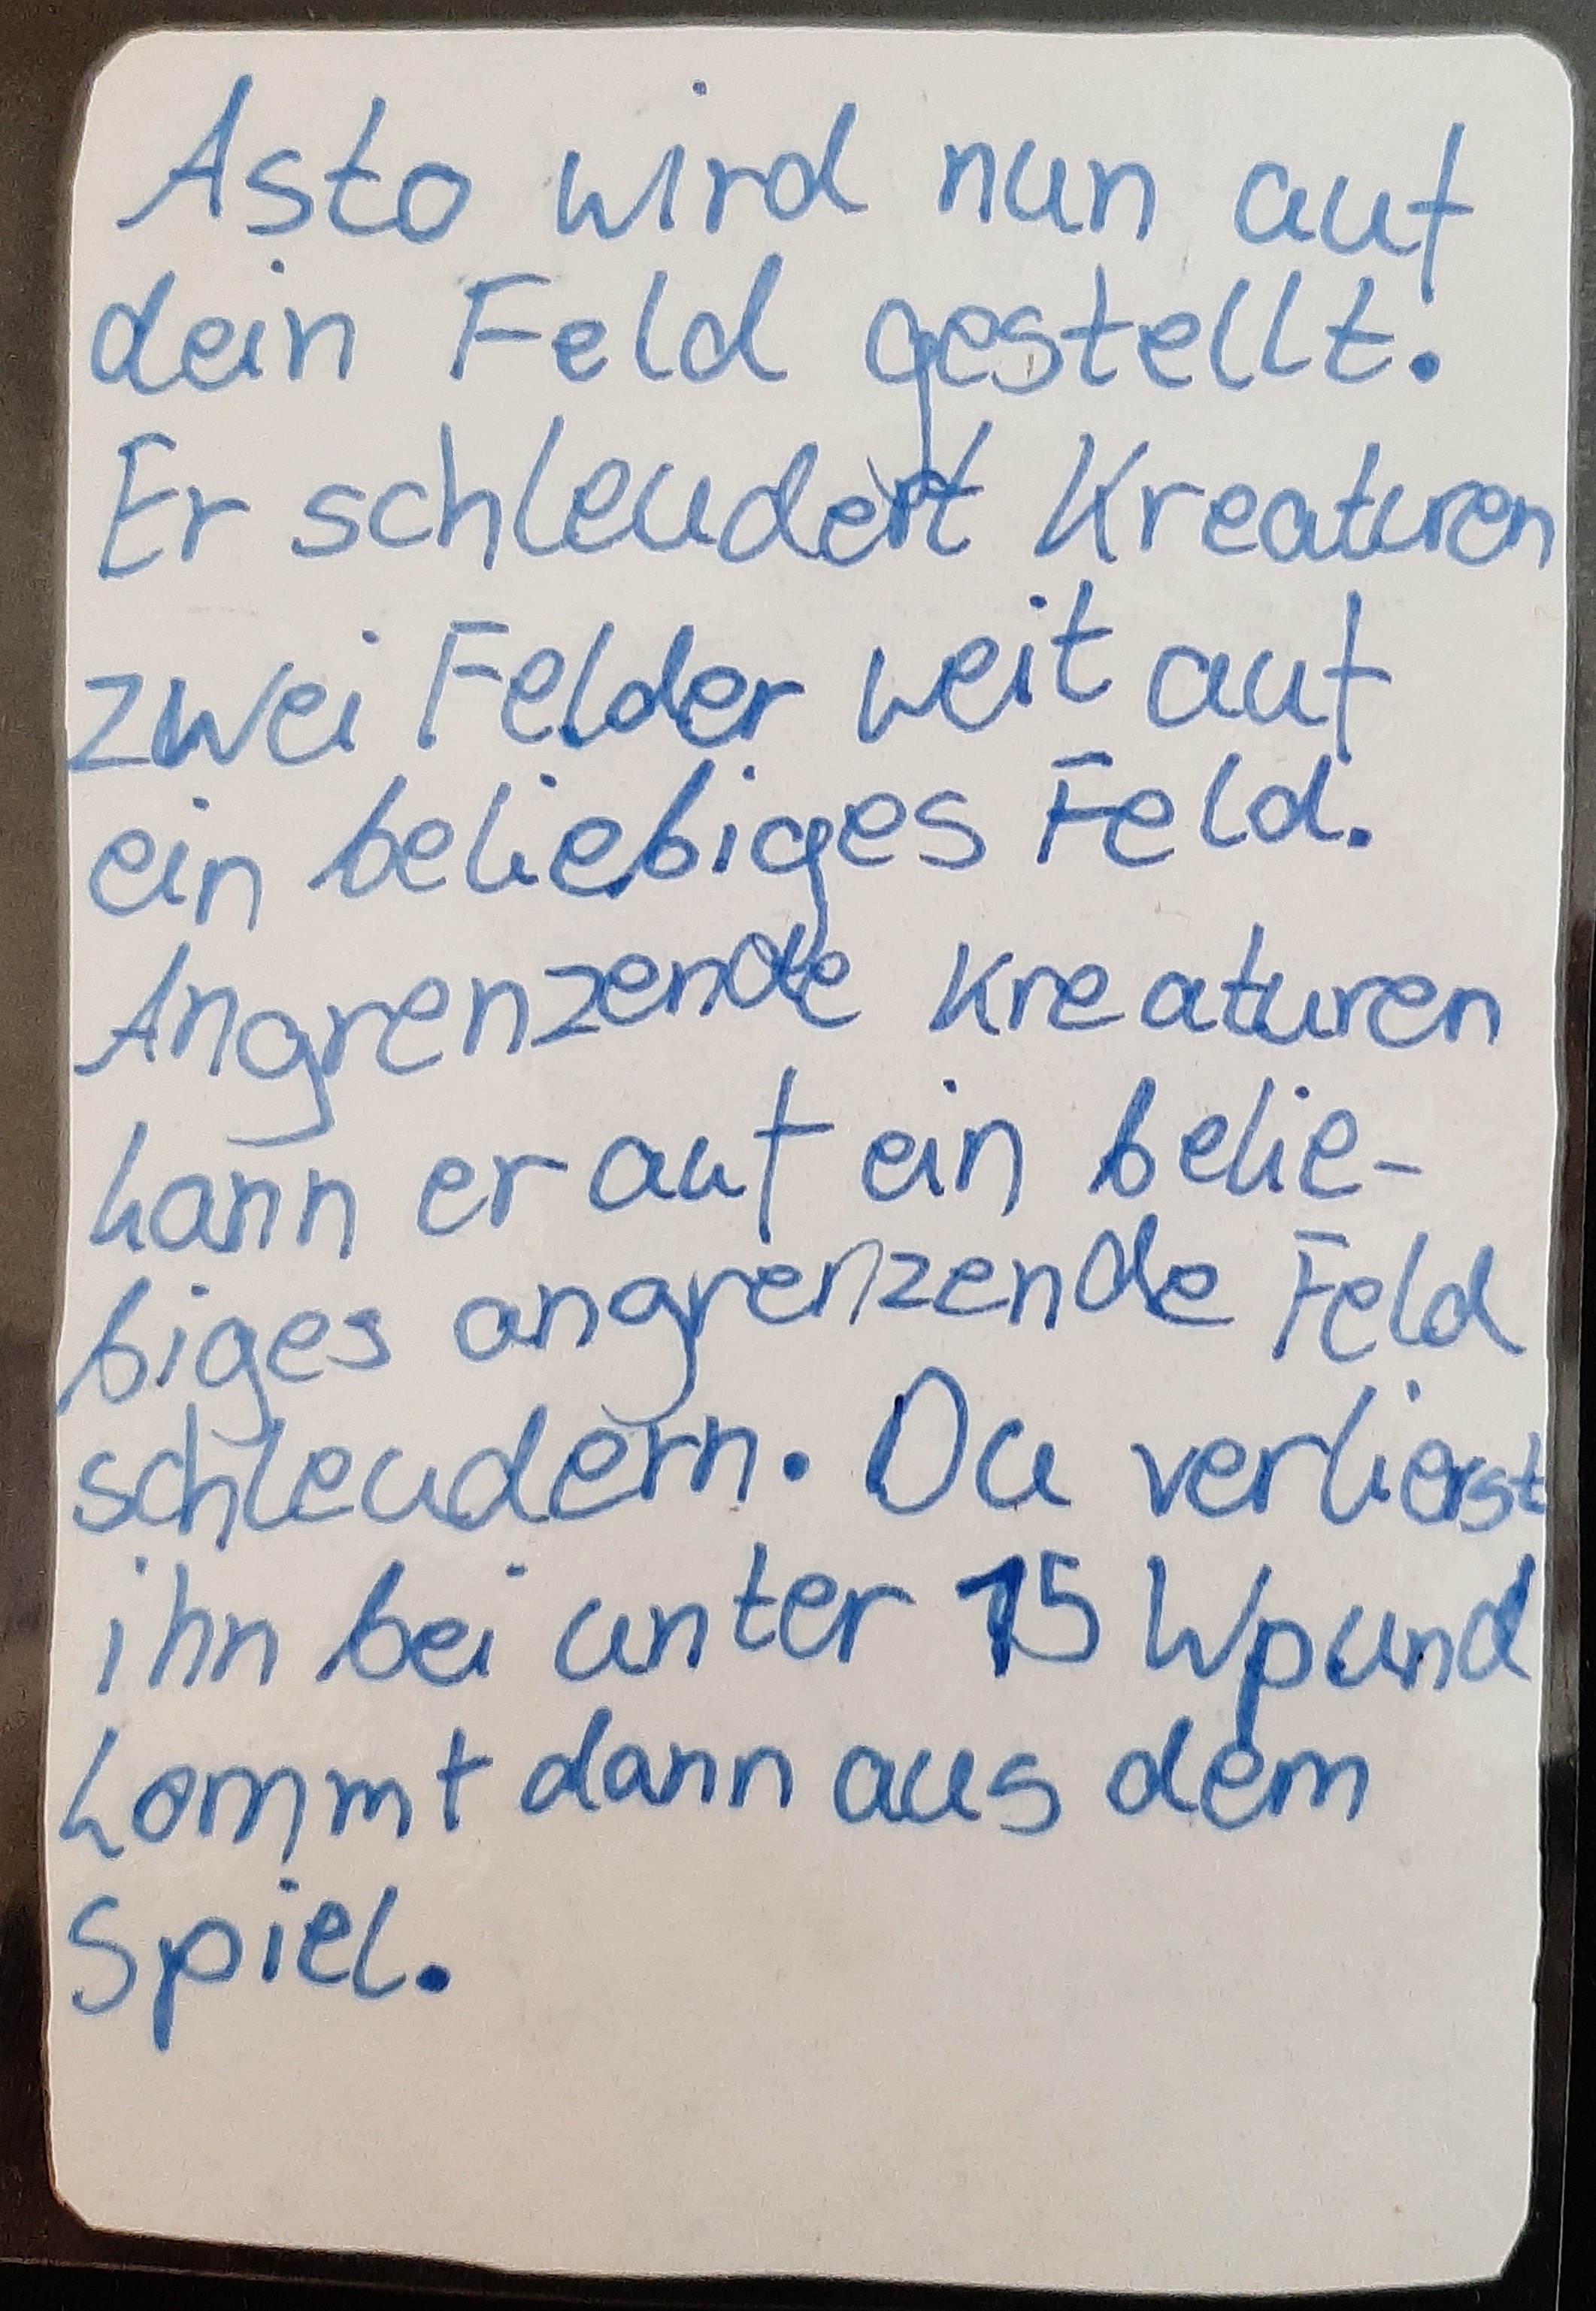 Asto wird nun auf
dein Feld gestellt.
Er schleudert Kreaturen
zwei Felder weit auf
ein beliebiges Feld.
Angrenzende Kreaturen
kann er auf ein belie-
biges angrenzende Feld
schleudern. Du verlierst
ihn bei unter 15 Wp und
kommt dann aus dem
Spiel.